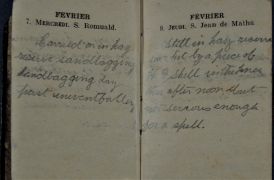 FEVRIER
7. MERCREDI. S. Romuald.
Carried on in hay
reserve sandbagging
sandbagging day
past uneventfully
FEVRIER
8. JEUDI. S. Jean de Matha
Still in hay reserve
hit by a piece of
shell in the knee
this after noon but
not serious enough
for a spell.